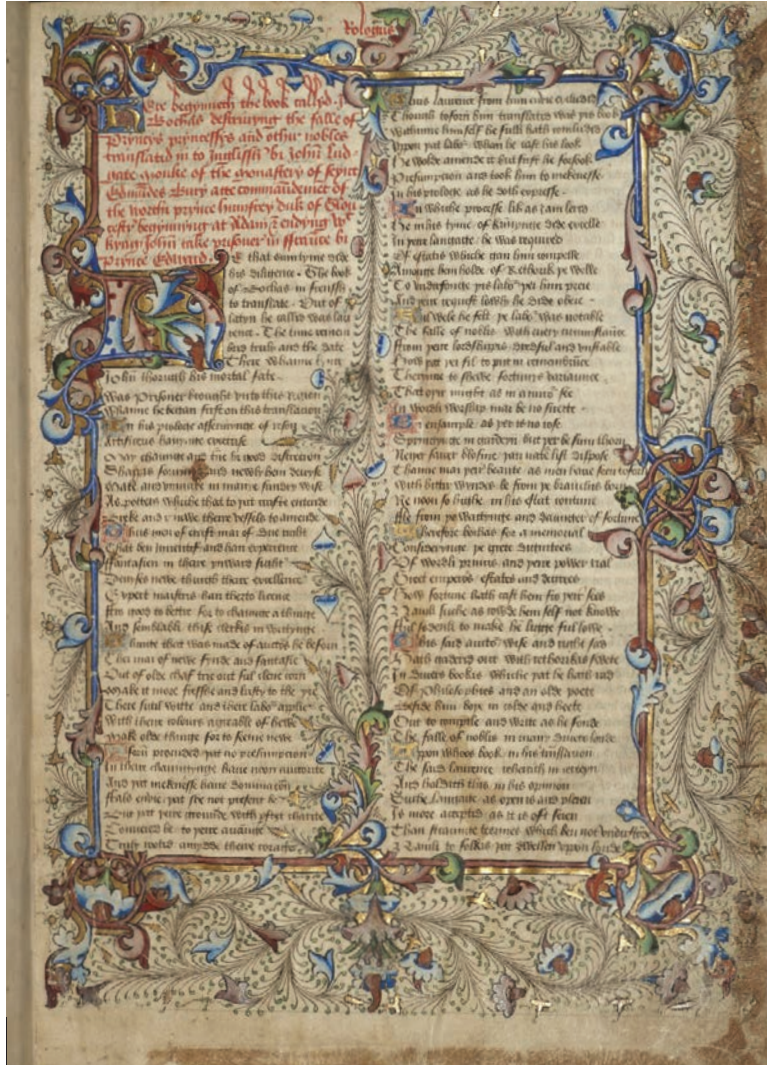 Prologus
Here begynneth the book callyd I
Bochas descriuyng the falle of
Pryncys pryncessys and othir nobles
translatid in to Inglissh bi John Lid
gate monke of the monastery of seynt
Edmundes Bury atte commaundement of
the worthi prynce humfrey duk of Glou
cestre begynnyng at Adam & endyng with
kyng John take prisoner in ffraunce bi
Prince Edward
HE that sumtyme dede
his diligence The book
of Bochas in frenssh
to translate Out of
latyn he callid was lau
rence The tyme remem
bred truly and the date
There whanne kyng
John thorugh his mortal fate
Was prisoner brought vnto this region
Whanne he began first on this translacion
In his prologe affermynge of reson
Artificeres hauynge exercise
May chaunge and turne bi good discrecion
Shappis formys and newly hem deuyse
Make and vnmake in many sundry wise
As potteres whiche that to þat craft entende
Breke and renewe there vessels to amende
Thus men of craft mai of due right
That ben inuentif and han experience
ffantasien in there inward sight
Deuises newe thorugh there excellence
Expert maisters han therto licence
ffrom good to bettir for to chaunge a thynge
And semblabli thise clerkis in writynge
Thynge that was made of auctours hem beforn
Thei mai of newe fynde and fantasie
Out of olde chaf trie out ful clene corn
Make it more fressh and lusty to the yie
There sutil witte and there labour applie
With there colours agreable of hewe
make olde things for to seeme newe
Afforn prouided þat no presumpcion
In there chaungynge haue noon autorite
And þat mekenesse haue dominacion
ffals enuye þat she not present be
But þat yere grounde with parfit charite
Conueied be to yere auauntage
Truly rotid amydde there corage
Thus laurence from hym enuie excludid
Though toforn hym translated was þis book
Withynne himself he fulli hath concludid
Upon þat labour whan he cast his look
He wolde amende it but first he forsook
Presumpcion and took hym to mekenesse
In his prologe as he doth expresse
In whiche processe lik as I am lerid
He in his tyme of kunnynge dede excelle
In yere langage he was requerid
Of estatis whiche gan hym compelle
Amonge hem holde of Rethorik þe welle
To vndirfonge þis labour þei hym preie
And yere request lowly he dede obeie
Ful wele he felt þe labour was notable
The falle of nobles with euery circumstaunce
ffrom yere lordshippes dredful and vnstable
How þat þei fil to put in remembraunce
Therynne to shewe fortunys variaunce
That othir myght as in a mirour see
In worldli worship may be no surete
Bi ensample as yer is no rose
Springynge in gardeyn but þer be sum thorn
Neuer fairer blosme þan nature list dispose
Thanne mai þeir beaute as men haue seen toforn
With bittir wyndes be from þe braunchis born
Ne noon so highe in his estat contune
ffre from þe waitynge and daunger of fortune
Wherfore bochas for a memorial
Considerynge þe grete dignitees
Of worldli princis and yere power rial
Gret emperours estatis and degrees
How fortune hath cast hem fro yeir sees
Namli suche as cowde hem self not knowe
fful sodenli to make hem ligge ful lowe
This said auctour wise and right sad
Hath gadered out with rethorikes swete
In diuers bookis whiche þat he hath rad
Of Philosophres and an olde poete
Beside hym boye in colde and heete
Out to compile and write as he fonde
The falle of nobles in many diuers londe
Upon whoos book in his translacion
The said laurence rehersith in certeyn
And holdith this in his opinion
Suche langage as open is and pleyn
Is more acceptid as it is oft seen
Than straunge termes which ben not vndirstonde
Namli to folkis þat dwellen vpon londe